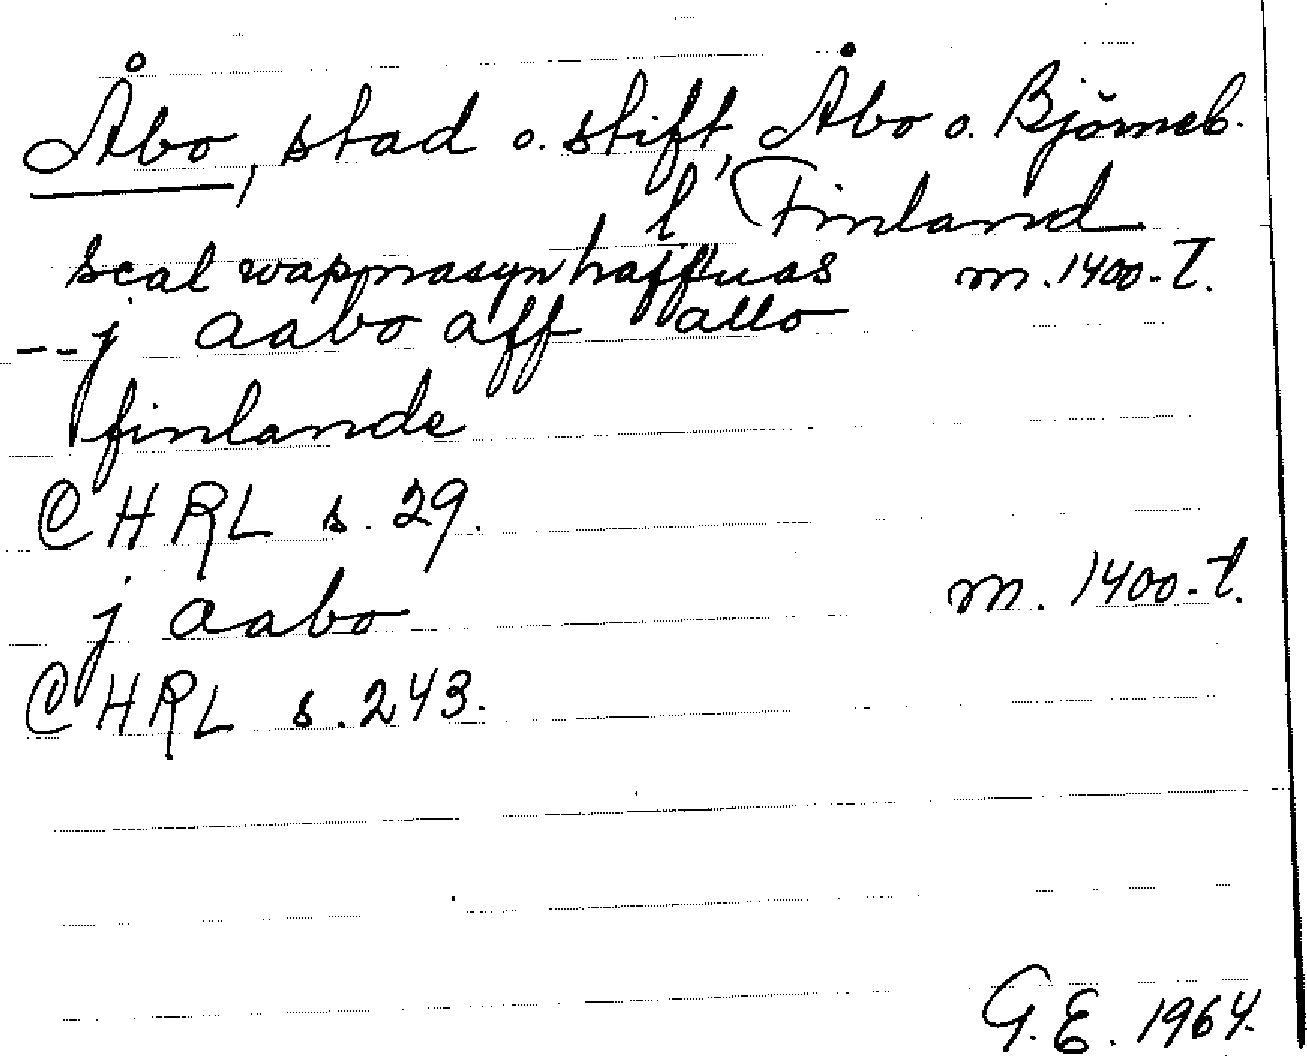 Åbo, stad o. stift, Åbo o. Björneb.
l, Finland
scal wapnasyn haffuas m. 1400-t.
--j aabo aff allo
finlande
CHRL s. 29.
j aabo m. 1400-t.
CHRL s. 243.
G. E. 1964.